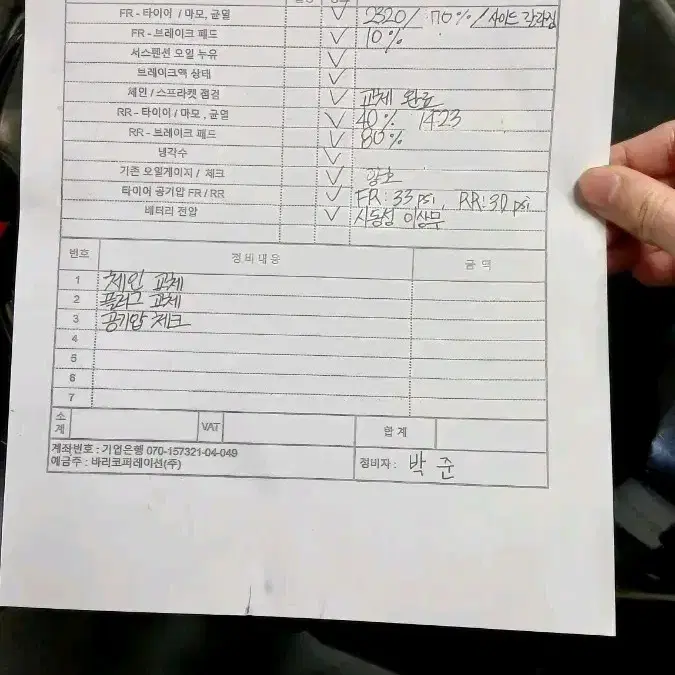 FR - 타이어 / 마모, 균열 ✓ 2320 / 70% / 사이드 갈라짐
FR - 브레이크 패드 ✓ 10%
서스펜션 오일 누유 ✓
브레이크액 상태 ✓
체인 / 스프라켓 점검 ✓ 교체 완료
RR - 타이어 / 마모, 균열 ✓ 40% 1423
RR - 브레이크 패드 ✓ 80%
냉각수 ✓
기존 오일게이지 / 체크 ✓ 양호
타이어 공기압 FR / RR ✓ FR : 33 psi, RR : 30 psi
배터리 전압 ✓ 시동성 이상무
번호 정비내용 금액
1 체인 교체
2 플러그 교체
3 공기압 체크
4
5
6
7
소계 VAT 합계
계좌번호 : 기업은행 070-157321-04-049
예금주 : 바리코퍼레이션(주)
정비자 : 박 준